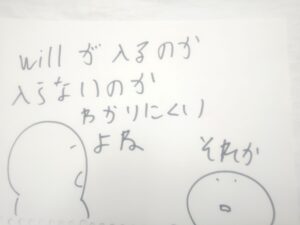 willが入るのか
入らないのか
わかりにくい
よね
それか